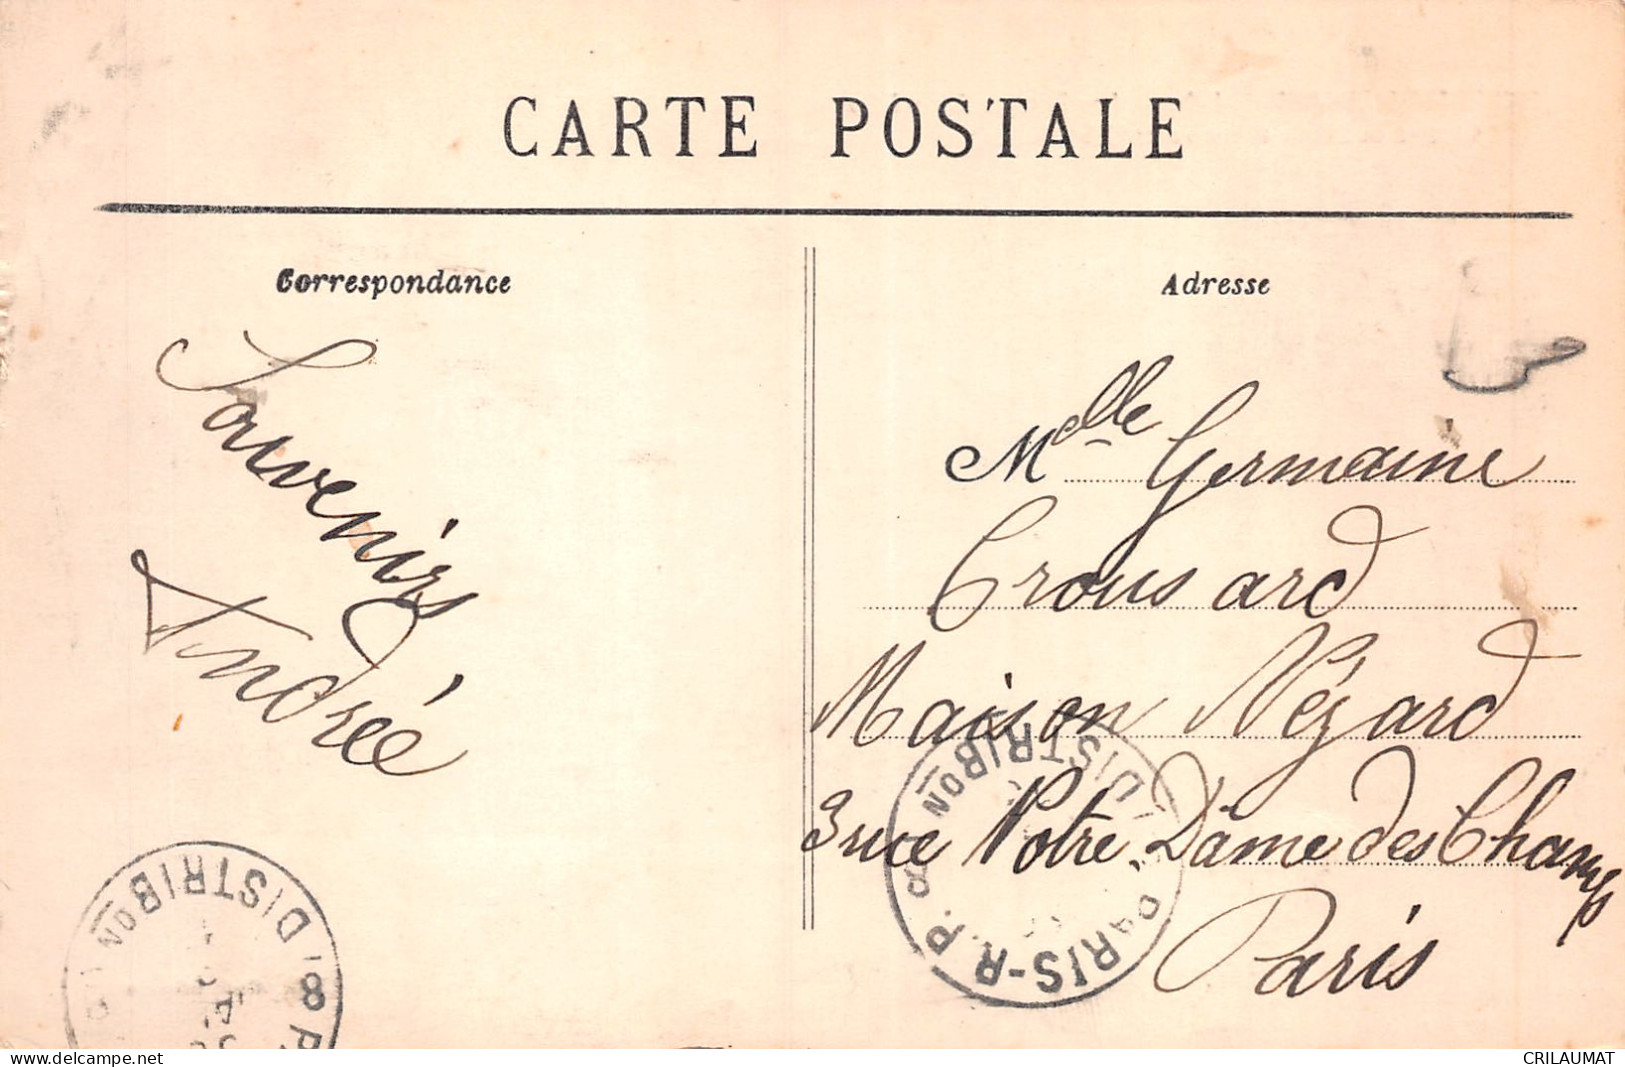 CARTE POSTALE
Correspondance
Adresse
Souvenirs
Andrée
Mlle Germaine
Crousard
Maison Vézard
3 rue Notre-Dame des Champs
Paris
DISTRIBON
PARIS-R.P.
8, DISTRIBON
delcampe.net
CRILAUMAT